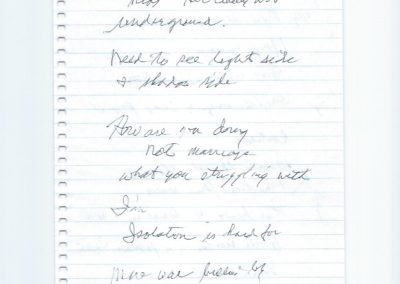 underground.
Need to see light side
& shadow side
How are you doing
not marriage
what you struggling with
I'm
Isolation is hard for
More war